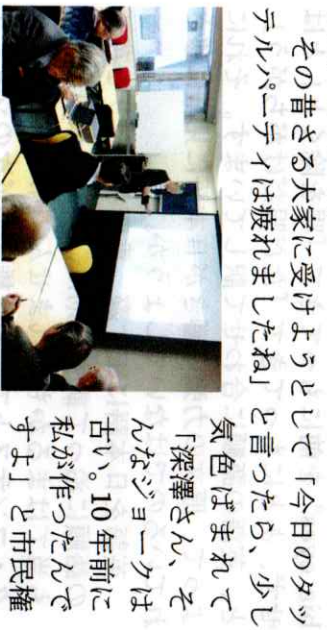 その昔さる大家に受けようとして「今日のタッ
テルパーティは疲れましたね」と言ったら、少し
気色ばまれて
「深澤さん、そ
んなジョークは
古い。10 年前に
私が作ったんで
すよ」と市民権